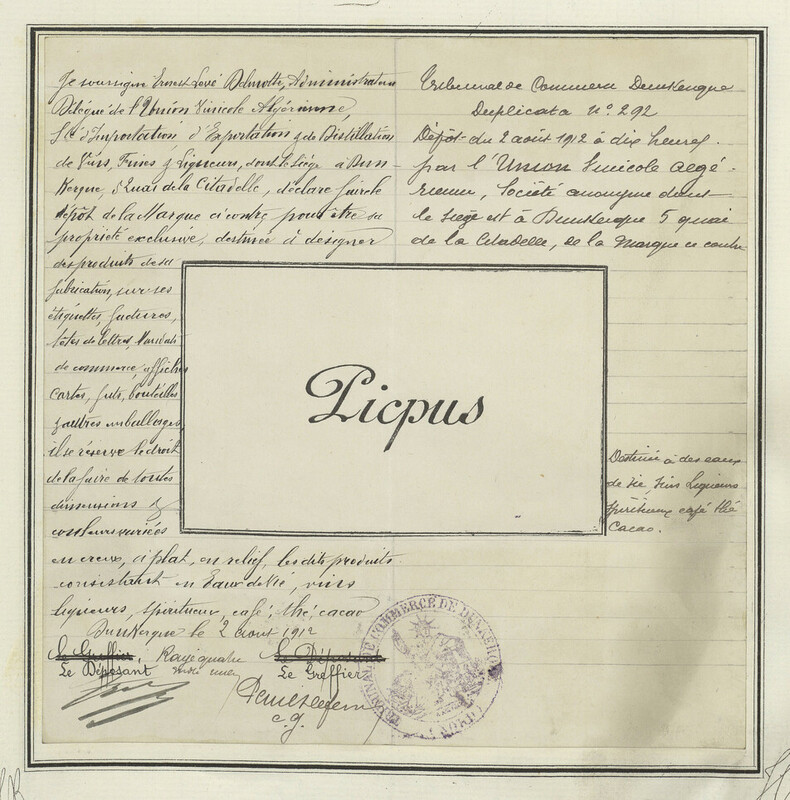 Je soussigné Ernest Delmotte, Administrateur
Délégué de l'Union Vinicole Algérienne,
Sté d'Importation d'Exportation & de Distillation
de Vins, & Liqueurs, dont le Siège à Dun-
Kerque, 5 Quai de la Citadelle, déclare faire le
dépôt de la Marque ci contre, pour être sa
propriété exclusive, destinée à désigner
des produits de sa
fabrication, sur ses
étiquettes, factures,
têtes de lettres, Mandats
de commerce, affiches
cartes, futs, bouteilles
& autres emballages,
il se réserve le droit
de la faire de toutes
dimensions &
couleurs variées
en creux, à plat, en relief, les dits produits
consistant en Eaux de Vie, vins
liqueurs, spiritueux, café, thé, cacao
Dunkerque le 2 aout 1912
Le Greffier
Le Déposant
Rayé quatre
Le Déposant
Le Greffier
c.g.
Tribunal de Commerce Dunkerque
Duplicata N° 292
Dépôt du 2 août 1912 à dix heures.
par l'Union Vinicole algé-
rienne, Société anonyme dont
le siège est à Dunkerque 5 quai
de la Citadelle, de la Marque ci contre
Picpus
Destinée à des eaux
de vie, vins liqueurs
spiritueux café thé
cacao.
TRIBUNAL DE COMMERCE DE DUNKERQUE
(NORD)